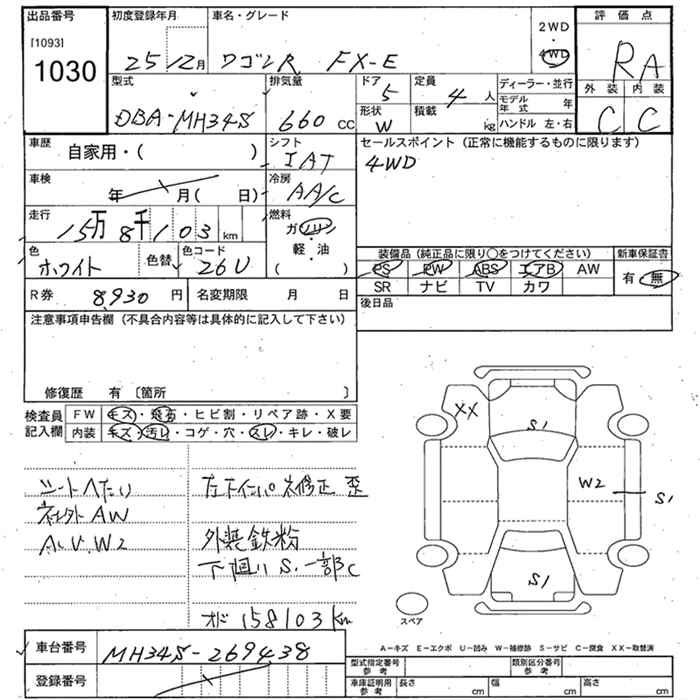 出品番号
[1093]
1030
初度登録年月
25 12月
車名・グレード
ワゴンR FX-E
2WD
・
4WD
評価点
RA
外装 内装
C C
型式
DBA-MH34S
排気量
660 cc
ドア
5
定員
4 人
形状
W
積載
kg
ディーラー・並行
モデル年式 年
ハンドル 左・右
車歴
自家用・( )
シフト
IAT
セールスポイント(正常に機能するものに限ります)
4WD
車検
年 月( 日)
冷房
AA/C
走行
15万8千103 km
燃料
ガソリン
・
軽・油
( )
色
ホワイト
色替
色コード
26U
装備品(純正品に限り○をつけてください)
新車保証書
PS PW ABS エアB AW
SR ナビ TV カワ
有・無
R券 8,930 円
名変期限 月 日
後日品
注意事項申告欄(不具合内容等は具体的に記入して下さい)
修復歴 有〔箇所 〕
検査員記入欄
FW キズ・飛石・ヒビ割・リペア跡・X要
内装 キズ・汚レ・コゲ・穴・スレ・キレ・破レ
シートへたり
社外AW
A.U.W2
外装鉄粉
下廻りS.一部C
オド 158103km
XX
S1
W2
S1
S1
スペア
A-キズ E-エクボ U-凹み W-補修跡 S-サビ C-腐食 XX-取替済
車台番号
MH34S-269438
登録番号
型式指定番号参考
類別区分番号参考
車庫証明用参考
長さ cm 幅 cm 高さ cm